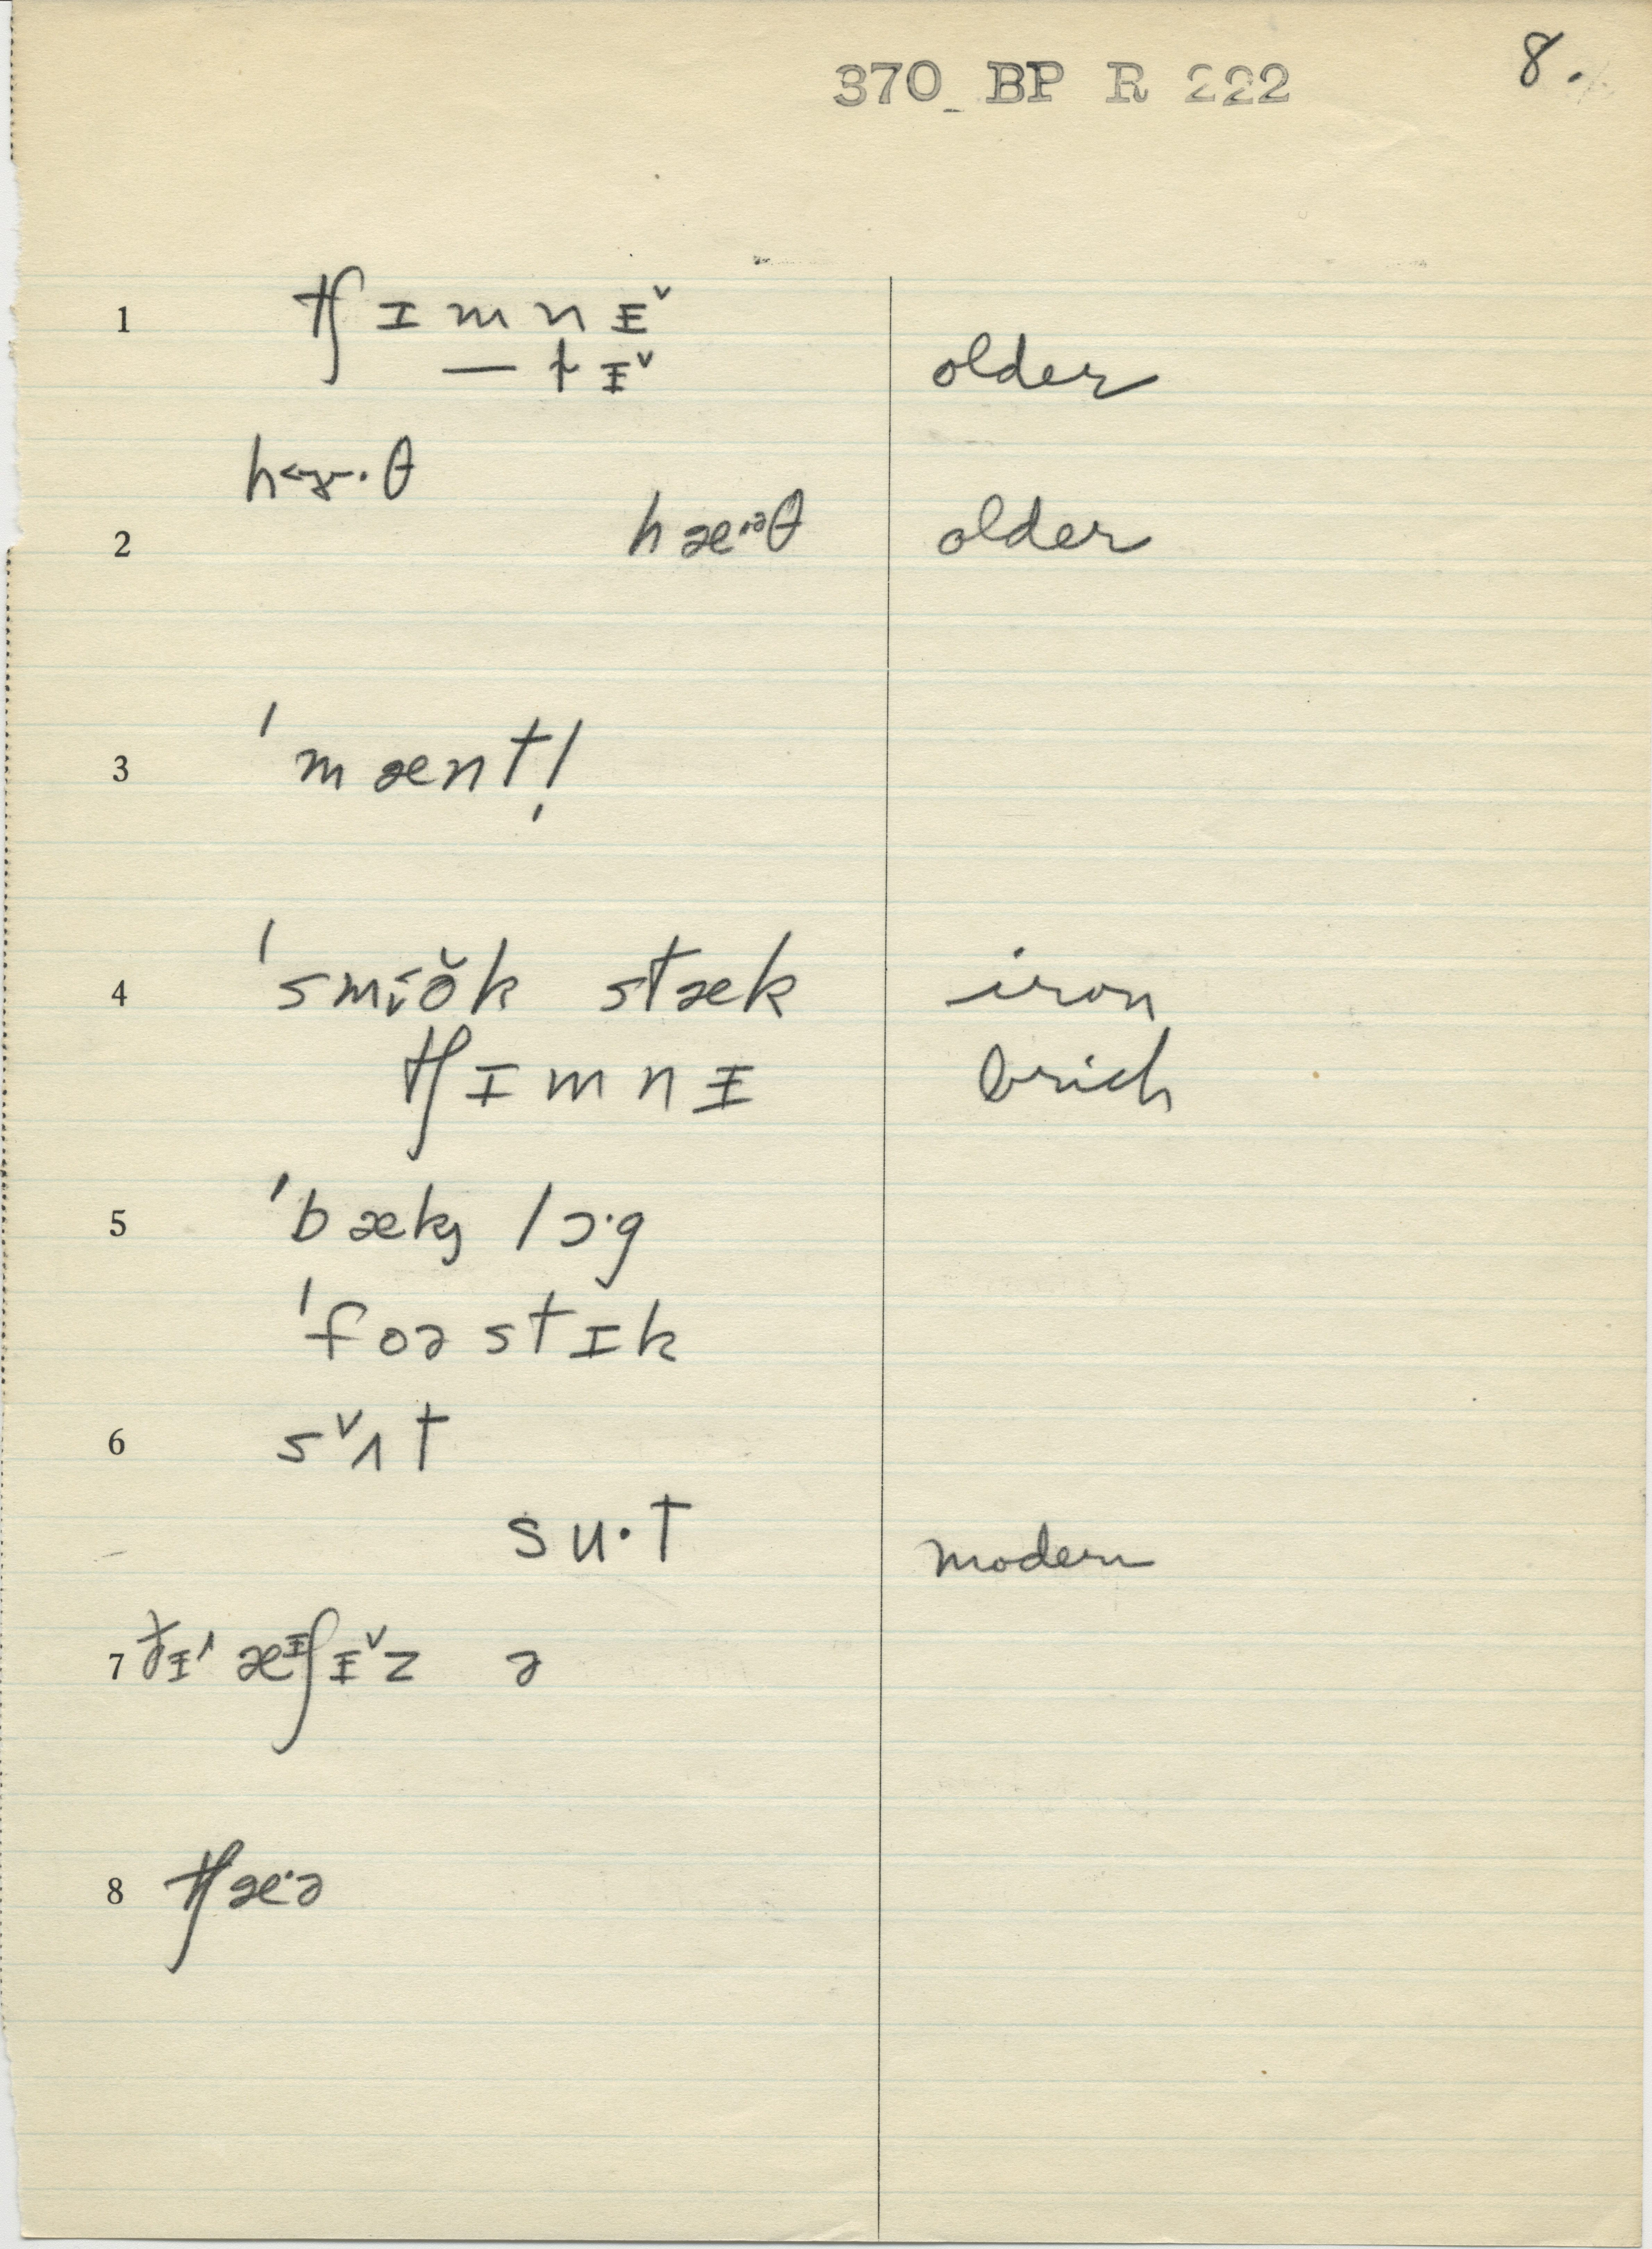 370 BP R 222 8.
1 tʃɪmnɨ˅
— tɨ˅ older
h˂ɤ·θ
2 hæ·ᵊθ older
3 ˈmæntl̩
4 ˈsm˂ɪ̬ŏk stæk iron
tʃɪmnɨ brick
5 ˈbæk̡ lɔ·g
ˈfoəstɪk
6 s˅ʌt
su·t modern
7 ðɨ˄ æᶤʃɨ˅z ə
8 tʃæ·ə